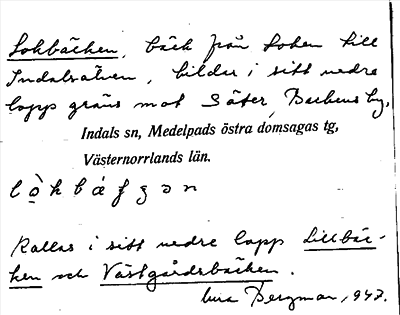 Lokbäcken, bäck från Loken till
Indalsälven, bildar i sitt nedre
lopp gräns mot Säter, Backens by,
Indals sn, Medelpads östra domsagas tg,
Västernorrlands län.
lòkbáfgən
Kallas i sitt nedre lopp Lillbäc-
ken och Västgårdsbäcken.
Bergman, 1947.